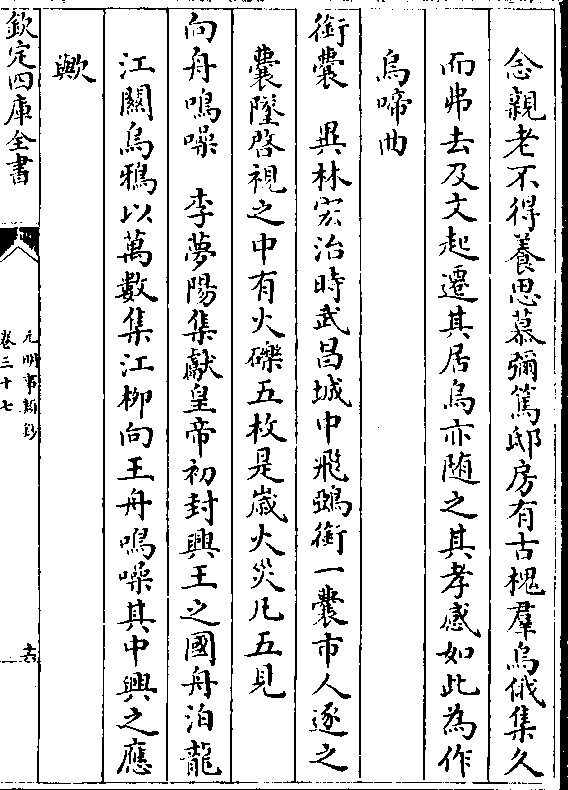 念親老不得養思慕彌篤邸房有古槐羣烏俄集久
而弗去及文起遷其居烏亦随之其孝感如此為作
烏啼曲
銜囊　異林宏治時武昌城中飛鵶銜一囊市人逐之
囊墜啓視之中有火礫五枚是歳火災凡五見
向舟鳴噪　李夢陽集獻皇帝初封興王之國舟泊龍
江關烏鴉以萬數集江栁向王舟鳴噪其中興之應
歟
欽定四庫全書
元明事類鈔
卷三十七
十六